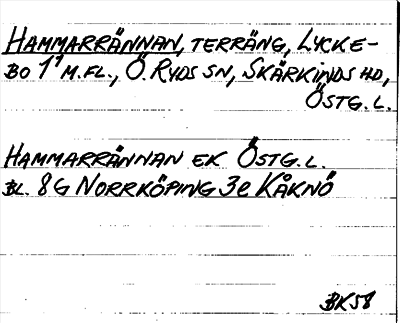 HAMMARRÄNNAN, TERRÄNG, LYCKE-
BO 1¹ M.FL., Ö. RYDS SN, SKÄRKINDS HD,
ÖSTG. L.
HAMMARRÄNNAN EK ÖSTG. L.
BL. 8G NORRKÖPING 3e KÅKNÖ
BK58